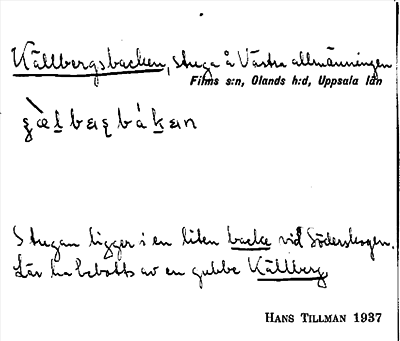 Källbergsbacken, stuga å Västra allmänningen
Films s:n, Olands h:d, Uppsala län
Stugan ligger i en liten backe vid Söderskogen.
Lär ha bebotts av en gubbe Källberg.
HANS TILLMAN 1937